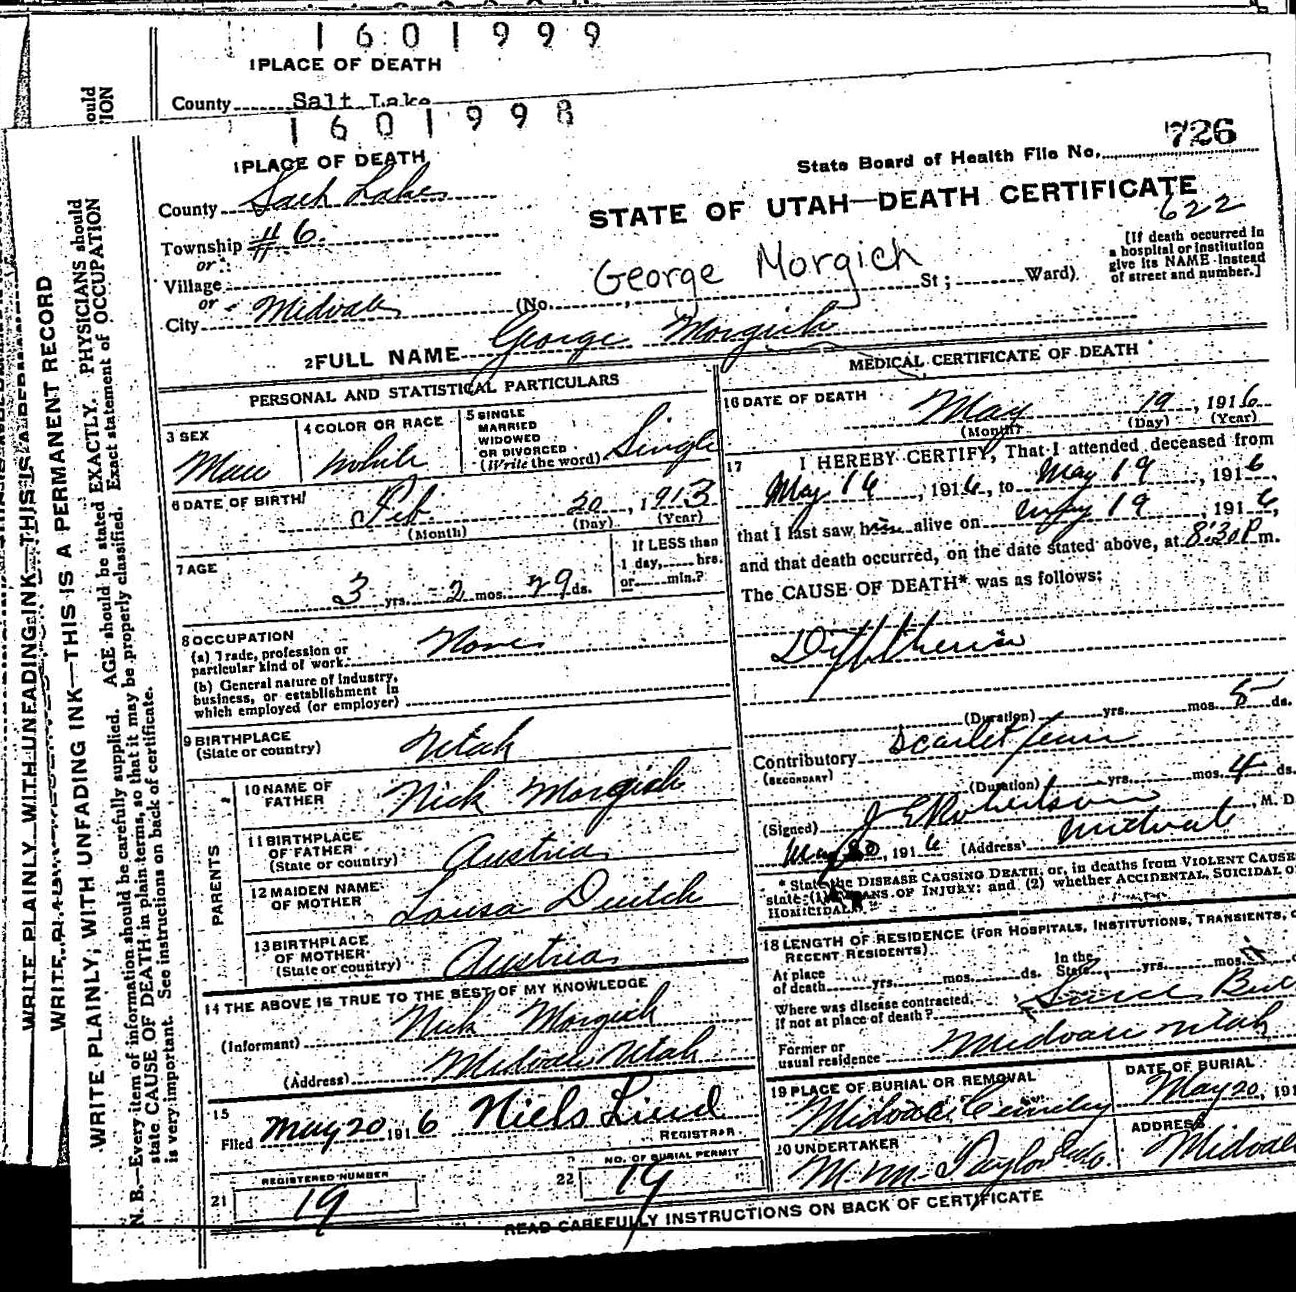 1601999
1 PLACE OF DEATH
County Salt Lake
1601998
1 PLACE OF DEATH
State Board of Health File No. 726
County Salt Lake
STATE OF UTAH—DEATH CERTIFICATE
622
Township #6
or
[If death occurred in
a hospital or institution
give its NAME instead
of street and number.]
Village
George Morgich
or
(No. St; Ward)
City Midvale
2 FULL NAME George Morgich
PERSONAL AND STATISTICAL PARTICULARS
3 SEX
Male
4 COLOR OR RACE
White
5 SINGLE
MARRIED
WIDOWED
OR DIVORCED
(Write the word) Single
6 DATE OF BIRTH
Feb 20, 1913
(Month) (Day) (Year)
7 AGE
3 yrs. 2 mos. 29 ds.
If LESS than
1 day, hrs.
or min.?
8 OCCUPATION
(a) Trade, profession or
particular kind of work None
(b) General nature of industry,
business, or establishment in
which employed (or employer)
9 BIRTHPLACE
(State or country) Utah
PARENTS
10 NAME OF
FATHER Nick Morgich
11 BIRTHPLACE
OF FATHER
(State or country) Austria
12 MAIDEN NAME
OF MOTHER
13 BIRTHPLACE
OF MOTHER
(State or country) Austria
14 THE ABOVE IS TRUE TO THE BEST OF MY KNOWLEDGE
(Informant) Nick Morgich
(Address) Midvale Utah
15
Filed May 20 1916 Niels Lind
REGISTRAR
21 REGISTERED NUMBER
19
22 NO. OF BURIAL PERMIT
19
MEDICAL CERTIFICATE OF DEATH
16 DATE OF DEATH
May 19, 1916
(Month) (Day) (Year)
17 I HEREBY CERTIFY, That I attended deceased from
May 16, 1916, to May 19, 1916,
that I last saw him alive on May 19, 1916,
and that death occurred, on the date stated above, at 8:30 P m.
The CAUSE OF DEATH* was as follows:
Diphtheria
(Duration) yrs. mos. 5 ds.
Contributory Scarlet fever
(SECONDARY)
(Duration) yrs. mos. 4 ds.
(Signed) J E Robertson, M. D.
May 20, 1916 (Address) Midvale
* State the DISEASE CAUSING DEATH, or, in deaths from VIOLENT CAUSE
state (1) MEANS OF INJURY; and (2) whether ACCIDENTAL, SUICIDAL O
HOMICIDAL.
18 LENGTH OF RESIDENCE (FOR HOSPITALS, INSTITUTIONS, TRANSIENTS, O
RECENT RESIDENTS)
At place
of death yrs. mos. ds.
In the
State yrs. mos.
Where was disease contracted,
if not at place of death?
Former or
usual residence Midvale Utah
19 PLACE OF BURIAL OR REMOVAL
Midvale Cemetery
DATE OF BURIAL
May 20, 191
20 UNDERTAKER
ADDRESS
Midvale
READ CAREFULLY INSTRUCTIONS ON BACK OF CERTIFICATE
WRITE PLAINLY, WITH UNFADING INK—THIS IS A PERMANENT RECORD
N. B.—Every item of information should be carefully supplied. AGE should be stated EXACTLY. PHYSICIANS should
state CAUSE OF DEATH in plain terms, so that it may be properly classified. Exact statement of OCCUPATION
is very important. See instructions on back of certificate.
WRITE PLAINLY WITH UNFADING INK—THIS IS A PERMANENT RECORD
ould
ION